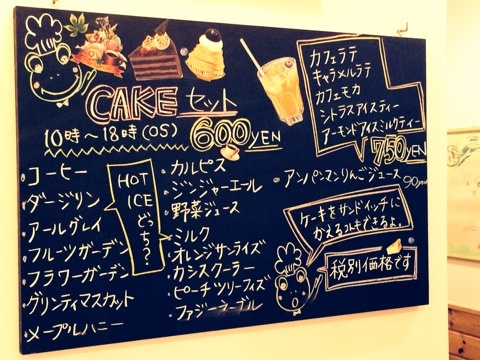 CAKEセット
10時〜18時(OS) 600YEN
・コーヒー
・ダージリン
・アールグレイ
・フルーツガーデン
・フラワーガーデン
・グリンティマスカット
・メープルハニー
HOT
ICE
どっち?
・カルピス
・ジンジャーエール
・野菜ジュース
・ミルク
・オレンジサンライズ
・カシスクーラー
・ピーチツリーフィズ
・ファジーネーブル
カフェラテ
キャラメルラテ
カフェモカ
シトラスアイスティー
アーモンドアイスミルクティー
750YEN
・アンパンマンりんごジュース
ケーキをサンドイッチに
かえるコトもできるよ。
税別価格です